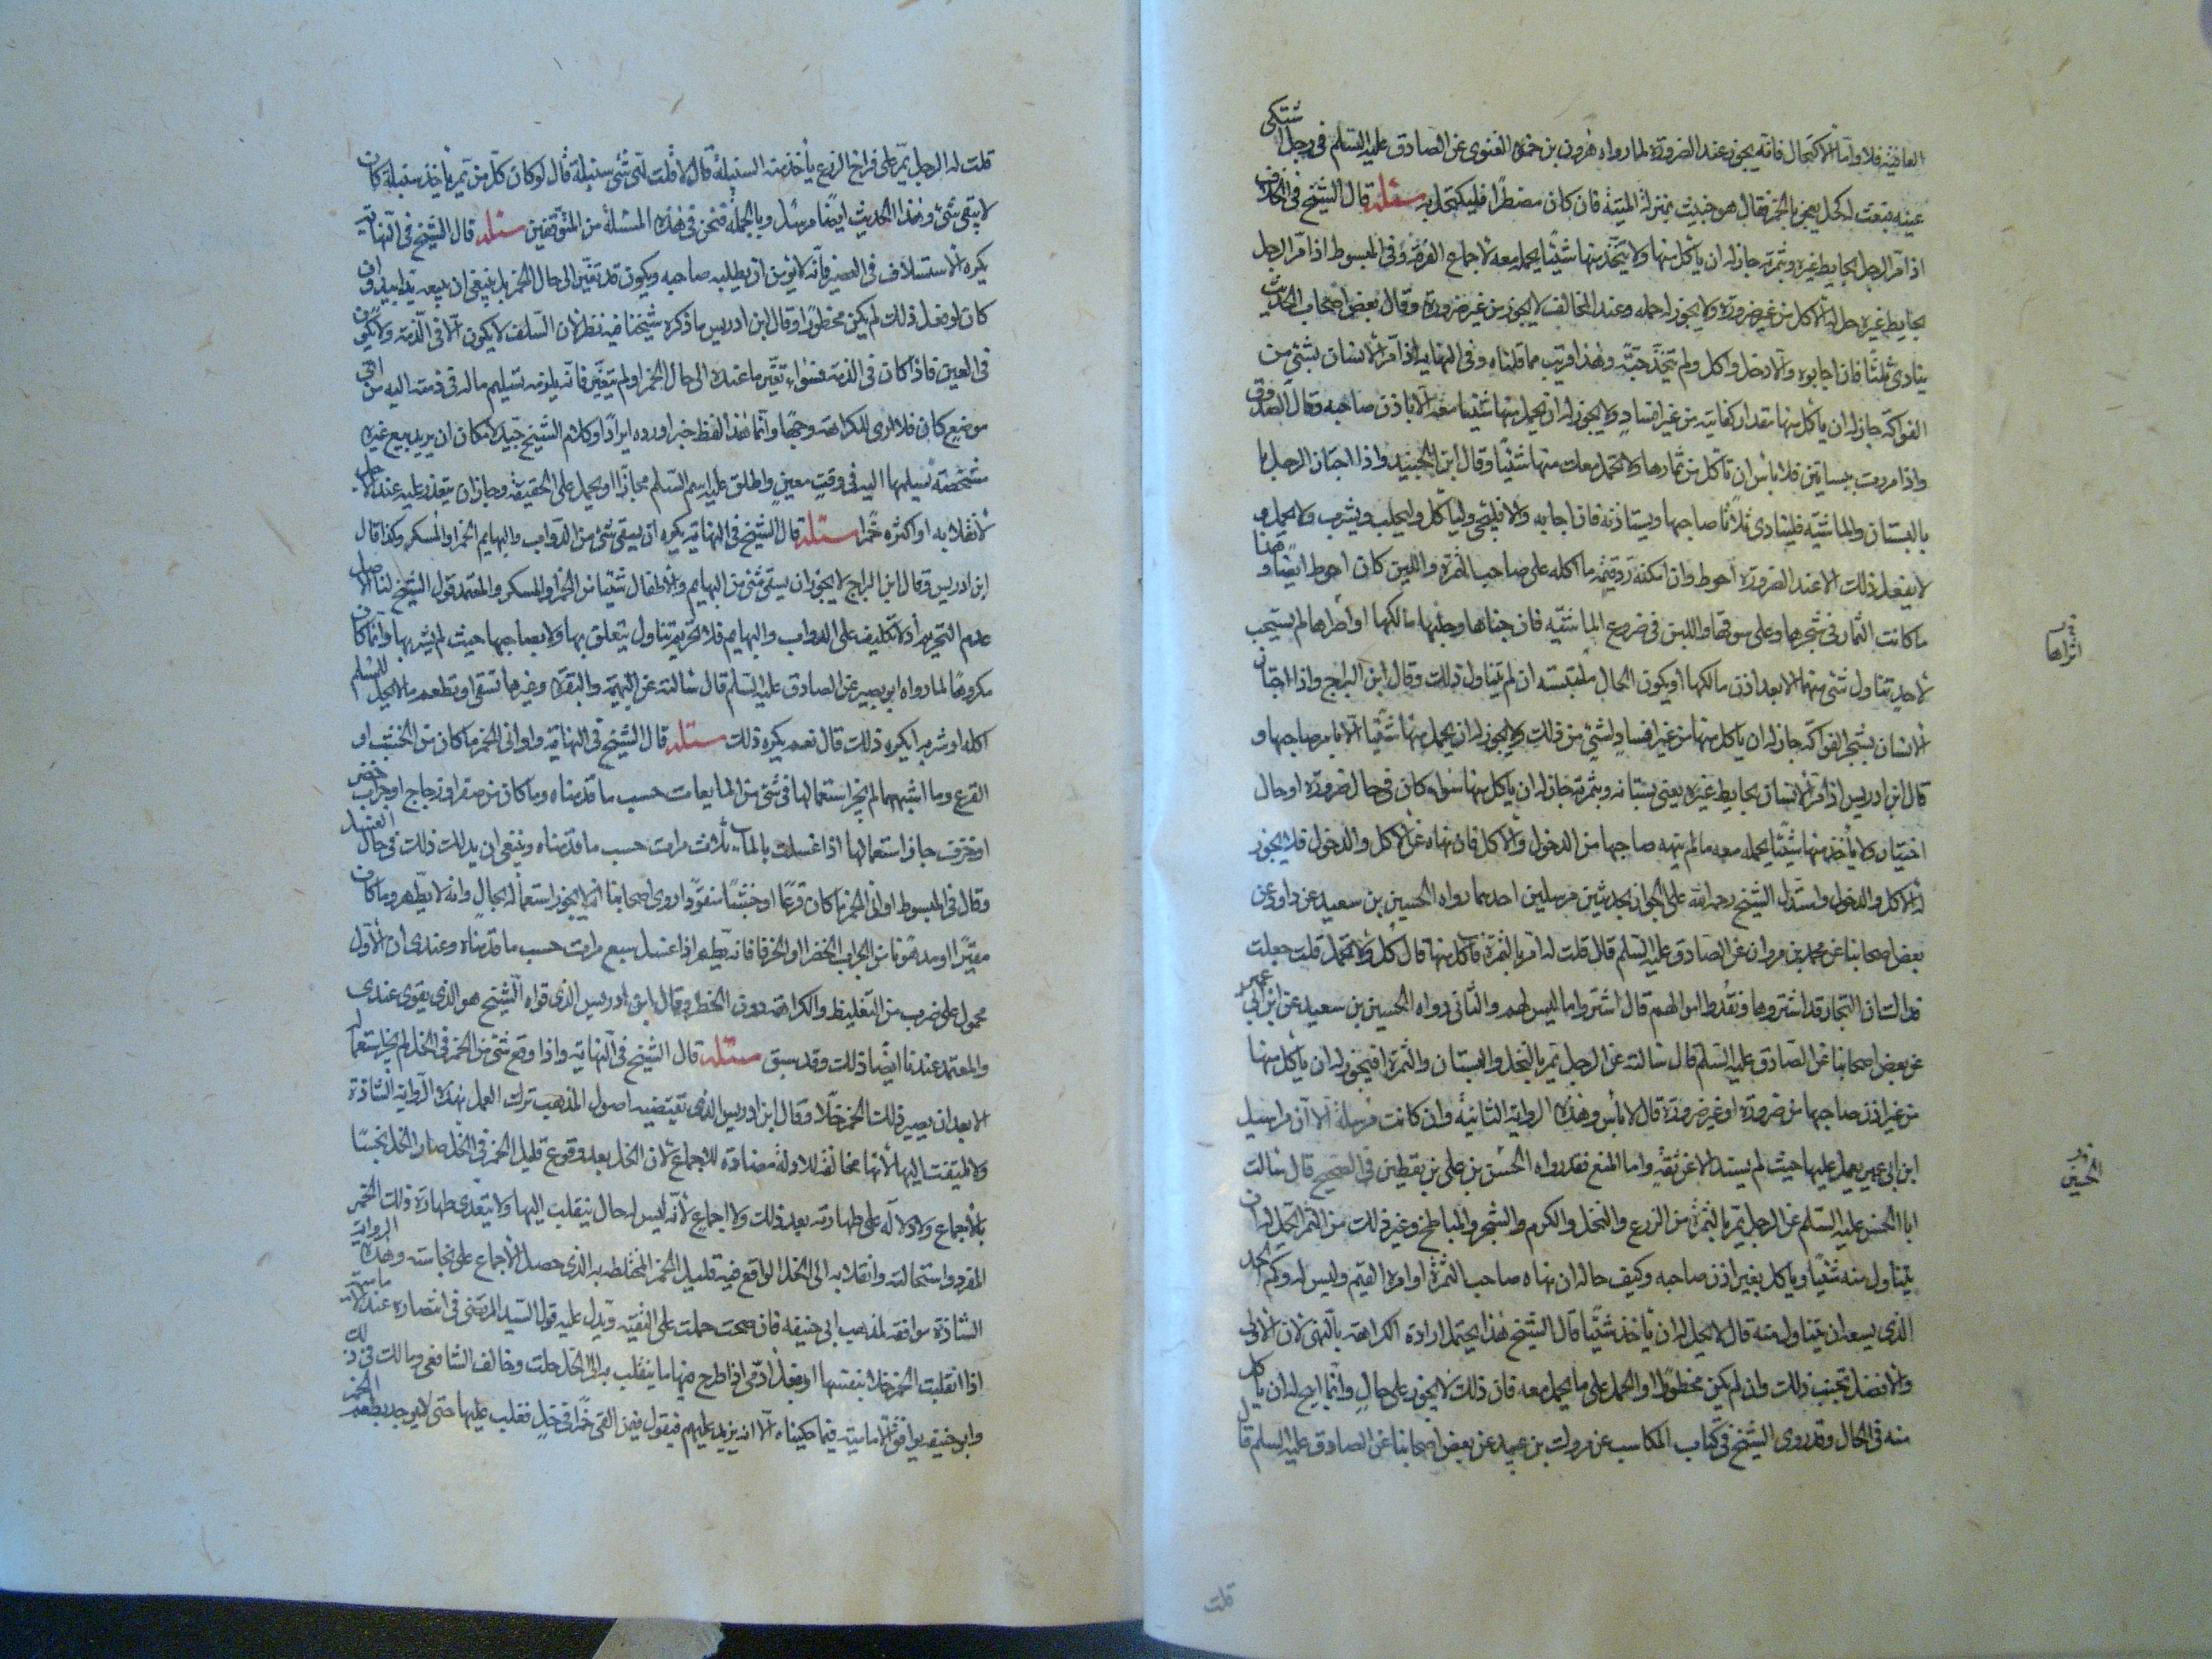 العافية فلا واما الاكتحال فانه يجوز عند الضرورة لما رواه هرون بن حمزة الغنوى عن الصادق عليه السلم فى رجل اشتكى
عينه فنعت له كحل يعجن بالخمر فقال هو خبيث بمنزلة الميتة فان كان مضطرا فليكتحل به مسئله قال الشيخ فى الخلاف
اذا مر الرجل بحايط غيره وثمرته جاز له ان ياكل منها ولا يتخذ منها شيئا يحمله معه لاجماع الفرقة وفى المبسوط اذا مر الرجل
بحايط غيره حل له الاكل من غير ضرورة ولا يجوز له حمله وعند المخالف لا يجوز من غير ضرورة وقال بعض اصحاب الحديث
ينادى ثلثا فان اجابوه والا دخل واكل ولم يتخذ خبنة وهذا قريب مما قلناه وفى النهاية اذا مر الانسان بشئ من
الفواكه جاز له ان ياكل منها بقدر كفايته من غير افساد ولا يجوز له ان يحمل منها شيئا معه الا باذن صاحبه وقال الصدوق
واذا مررت ببساتين فلا باس ان تاكل من ثمارها ولا تحمل معك منها شيئا وقال ابن الجنيد واذا اجتاز الرجل
بالبستان والماشية فلينادى ثلاثا صاحبها ويستاذنه فان اجابه والا فليجئ ولياكل وليحلب ويشرب ولا يحمل و
لا يفعل ذلك الا عند الضرورة احوط وان امكنه رد قيمة ما اكله على صاحب الثمرة واللبن كان احوط ايضا وهذا
ما كانت الثمار فى شجرها وعلى سوقها واللبن فى ضروع الماشية فان جناها وحلبها مالكها او لم يستحب
لاحد تناول شئ منهما الا بعد اذن مالكها او يكون الحال ان لم يتناول ذلك وقال ابن البراج واذا اجتاز
الانسان بشجر الفواكه جاز له ان ياكل منها من غير افساد لشئ من ذلك ولا يجوز له ان يحمل منها شيئا الا بامر صاحبها و
قال ابن ادريس اذا مر الانسان بحايط غيره يعنى بستانه وبثمرته جاز له ان ياكل منها سواء كان فى حال ضرورة او حال
اختيار ولا ياخذ منها شيئا يحمله معه ما لم ينهه صاحبها من الدخول والاكل فان نهاه عن الاكل والدخول فلا يجوز
له الاكل والدخول واستدل الشيخ رحمه الله على الجواز بحديثين مرسلين احدهما رواه الحسين بن سعيد عن داود عن
بعض اصحابنا عن محمد بن مروان عن الصادق عليه السلم قال قلت له امر بالثمرة فآكل منها قال كل ولا تحمل قلت جعلت
فداك ان التجار قد اشتروها ونقدوا اموالهم قال اشتروا ما ليس لهم والثانى رواه الحسين بن سعيد عن ابن ابى عمير
عن بعض اصحابنا عن الصادق عليه السلم قال سالته عن الرجل يمر بالنخل والبستان والثمرة افيجوز له ان ياكل منها
من غير اذن صاحبها من ضرورة او غير ضرورة قال لا باس وهذه الرواية الثانية وان كانت مرسلة الا ان مراسيل
ابن ابى عمير يعمل عليها حيث لم يسند الا عن ثقة واما المنع فقد رواه الحسن بن على بن يقطين فى الصحيح قال سالت
ابا الحسن عليه السلم عن الرجل يمر بالثمرة من الزرع والنخل والكرم والشجر والمباطخ وغير ذلك من الثمر ايحل له ان
يتناول منه شيئا وياكل بغير اذن صاحبه وكيف حاله ان نهاه صاحب الثمرة او امره القيم وليس له وكم الحد
الذى يسعه ان يتناول منه قال لا يحل له ان ياخذ شيئا قال الشيخ هذا يحتمل ارادة الكراهة بالنهى لان الاولى
والافضل تجنب ذلك وان لم يكن محظورا او الحمل على ما يحمل معه فان ذلك لا يجوز على حال وانما ابيح له ان ياكل
منه فى الحال وقد روى الشيخ فى كتاب المكاسب عن مروك بن عبيد عن بعض اصحابنا عن الصادق عليه السلم قال
الحسين
قلت
قلت له الرجل يمر على قراح الزرع ياخذ منه السنبلة قال لا قلت اى شئ سنبلة قال لو كان كل من يمر به ياخذ سنبلة كان
لا يبقى شئ وهذا الحديث ايضا مرسل وبالجملة فنحن فى هذه المسئلة من المتوقفين مسئله قال الشيخ فى النهاية
يكره الاستسلاف فى العصير فانه لا يؤمن ان يطلبه صاحبه ويكون قد تغير الى حال الخمر بل ينبغى ان يبيعه يدا بيد وان
كان لو فعل ذلك لم يكن محظورا وقال ابن ادريس ما ذكره شيخنا فيه نظر لان السلف لا يكون الا فى الذمة ولا يكون
فى العين فاذا كان فى الذمة فسواء تغير ما عنده الى حال الخمر او لم يتغير فانه يلزمه تسليم ماله فى ذمته اليه من اى
موضع كان فلا ارى للكراهة وجها وانما هذا لفظ خبر اورده ايرادا وكلام الشيخ جيد لامكان ان يريد بيع عين
مشخصة يسلمها اليه فى وقت معين واطلق عليه اسم السلم مجازا او يحمل على الحقيقة وجاز ان يتعذر عليه عند الاجل
لانقلابه او اكثره خمرا مسئله قال الشيخ فى النهاية يكره ان يسقى شئ من الدواب والبهايم الخمر او المسكر وكذا قال
ابن ادريس وقال ابن البراج لا يجوز ان يسقى شئ من البهايم والاطفال شيئا من الخمر او المسكر والمعتمد قول الشيخ لنا الاصل
عدم التحريم اذ لا تكليف على الدواب والبهايم فلا تحريم تتناول يتعلق بها ولا بصاحبها حيث لم يشربها وانما كان
مكروها لما رواه ابو بصير عن الصادق عليه السلم قال سالته عن البهيمة والبقرة وغيرها تسقى او تطعم ما لا يحل للمسلم
اكله او شربه ايكره ذلك قال نعم يكره ذلك مسئله قال الشيخ فى النهاية واوانى الخمر ما كان من الخشب او
القرع وما اشبههما لم يجز استعمالها فى شئ من المايعات حسب ما قدمناه وما كان من صفر او زجاج او جرار خضر
او خزف جاز استعمالها اذا غسلت بالماء ثلاث مرات حسب ما قدمناه وينبغى ان يدلك ذلك فى حال الغسل
وقال فى المبسوط اوانى الخمر ما كان قرعا او خشبا منقورا روى اصحابنا انه لا يجوز استعماله بحال وانه لا يطهر وما كان
مقيرا او مدهونا من الجرار الخضر او الخزف فانه يطهر اذا غسل سبع مرات حسب ما قدمناه وعندى ان الاول
محمول على ضرب من التغليظ والكراهة دون الحظر وقال ابن ادريس الذى قواه الشيخ هو الذى يقوى عندى
والمعتمد عندنا ايضا ذلك وقد سبق مسئله قال الشيخ فى النهاية واذا وقع شئ من الخمر فى الخل لم يجز استعماله
الا بعد ان يصير ذلك الخمر خلا وقال ابن ادريس الذى يقتضيه اصول المذهب ترك العمل بهذه الرواية الشاذة
ولا يلتفت اليها لانها مخالفة للادلة مضادة للاجماع لان الخل بعد وقوع قليل الخمر فى الخل صار الخل نجسا
بالاجماع ولا دلالة على طهارته بعد ذلك ولا اجماع لانه ليس له حال ينقلب اليها ولا يتعدى طهارة ذلك الخمر
المفرد واستحالته وانقلابه الى الخل الواقع فيه قليل الخمر المختلطه به الذى حصل الاجماع على نجاسته وهذه الرواية
الشاذة موافقة لمذهب ابى حنيفة فان صحت حملت على التقية ويدل عليه قول السيد المرتضى فى انتصاره عند الامامية
اذا انقلبت الخمر خلا بنفسها او بفعل ادمى اذا طرح فيها ما ينقلب به الى الخل حلت وخالف الشافعى ومالك فى ذلك
وابو حنيفة يوافق الامامية فيما حكيناه الا انه يزيد عليهم فيقول فيمن القى خمرا فى خل فغلب عليها حتى لا يوجد طعم الخمر